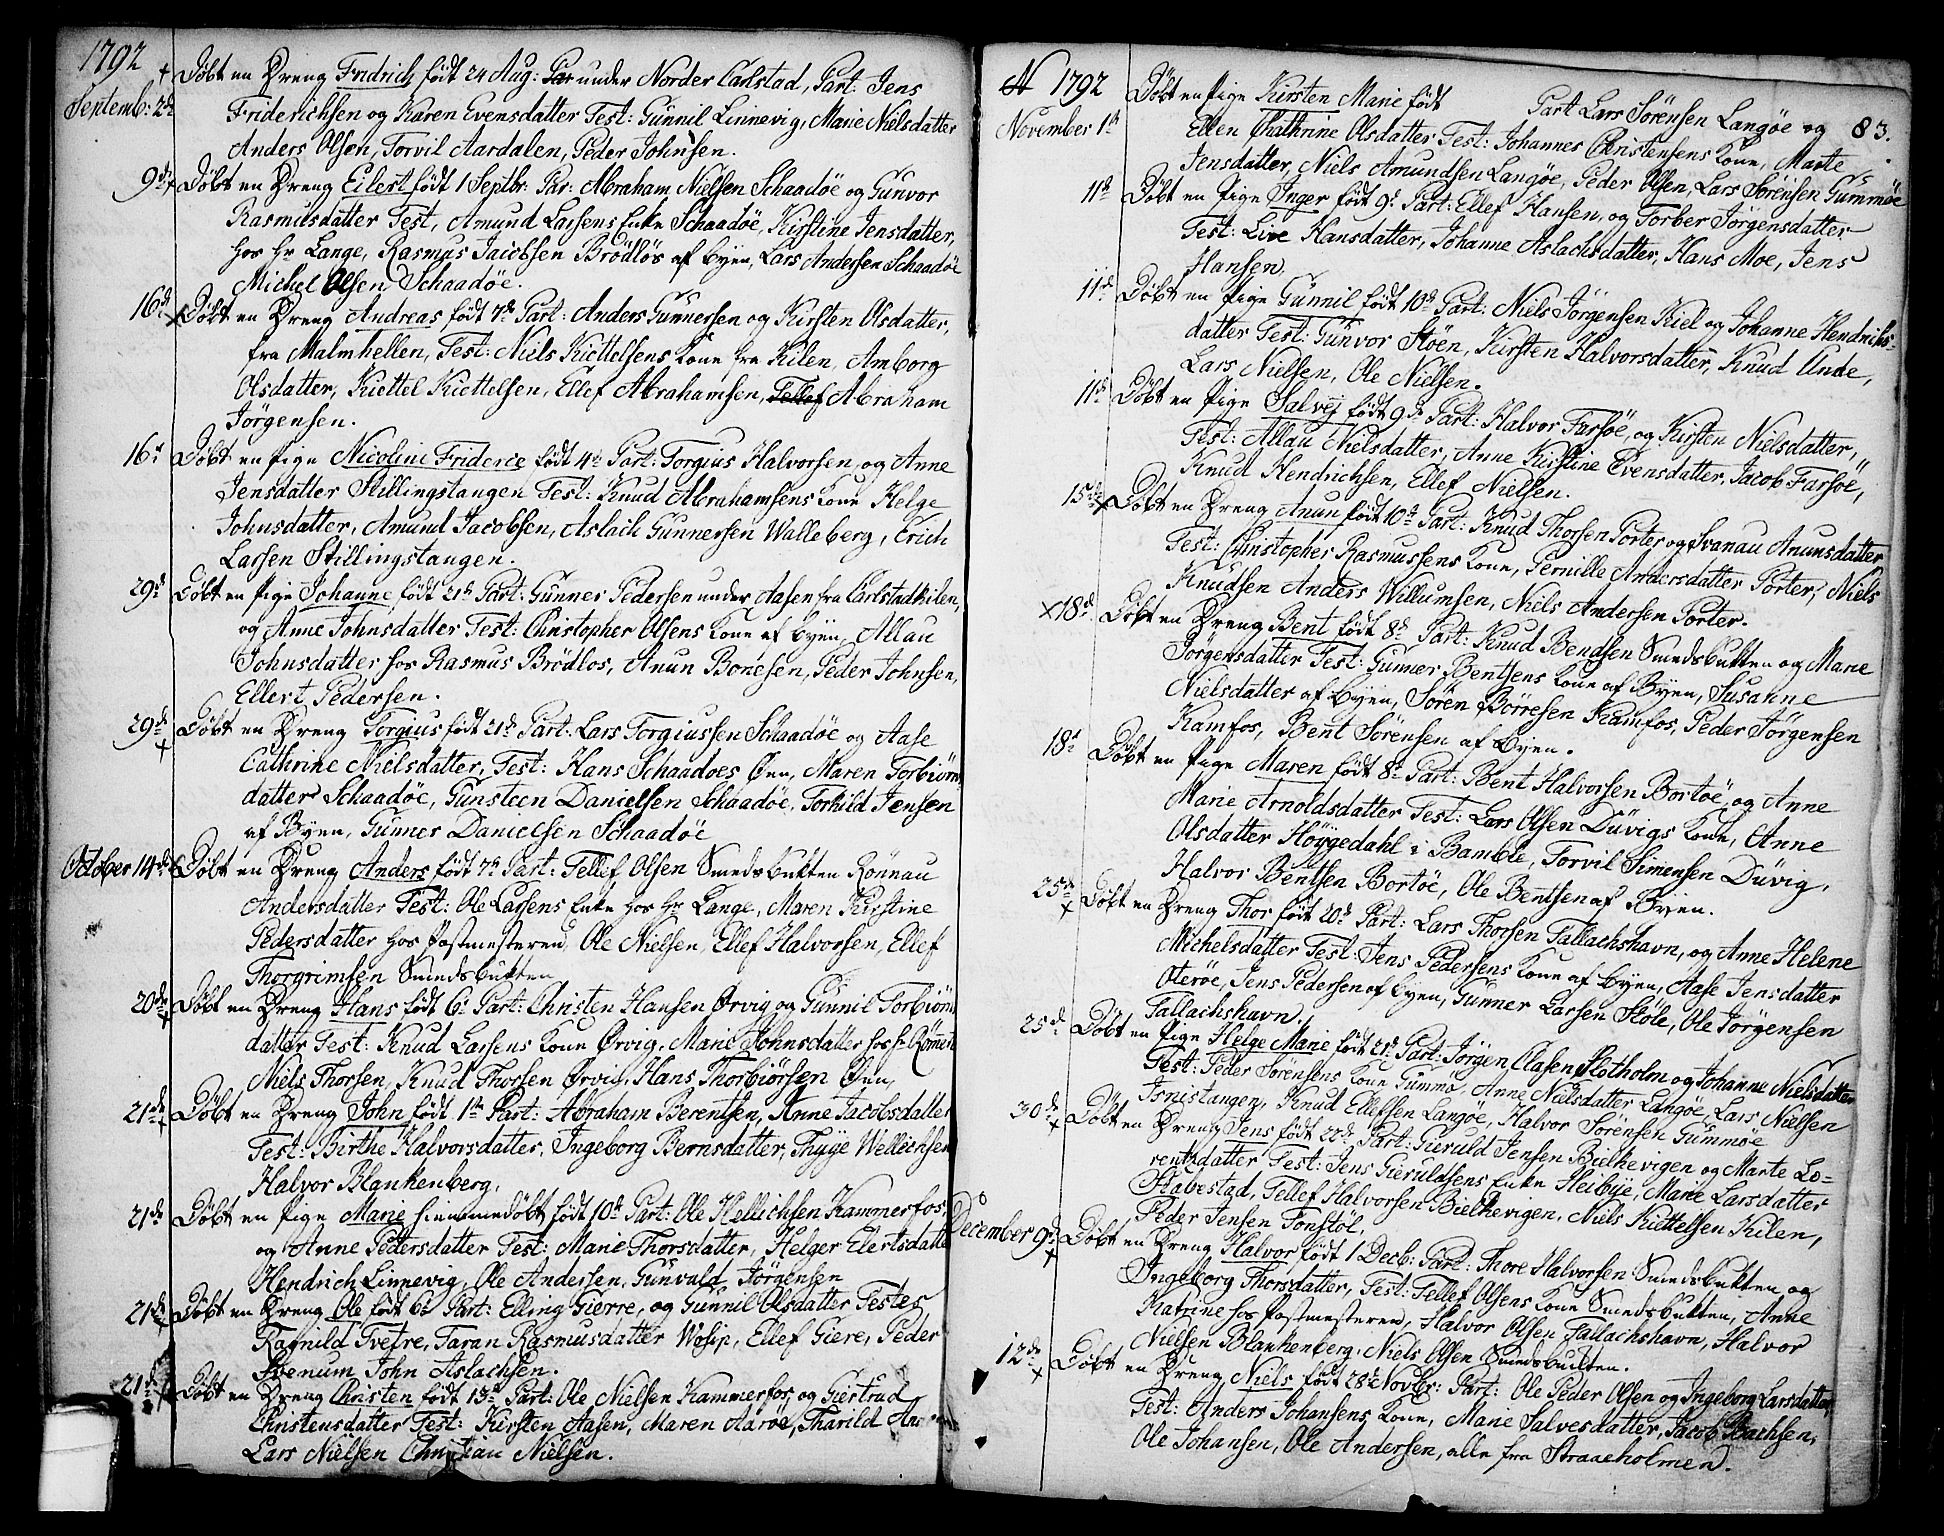 1792
Septemb: 2d + Döbt en Dreng Fridrich födt 24 Aug: under Norder Carlstad, Part: Jens
Friderichsen og Karen Evensdatter Test: Gunnil Linnevig, Marie Nielsdatter
Anders Olsen, Torvil Aardalen, Peder Johnsen.
9d + Döbt en Dreng Eilert födt 1 Septbr: Par: Abraham Nielsen Schaadöe og Gunvor
Rasmusdatter Test, Amund Larsens Enke Schaadöe, Kirstine Jensdatter,
hos Hr Lange, Rasmus Jacobsen Brödlös af Byen, Lars Andersen Schaadöe
Michel Olsen Schaadöe.
16d x Döbt en Dreng Andreas födt 7d Part: Anders Gunnersen og Kirsten Olsdatter,
fra Malmhellen, Test: Niels Kiettelsens Kone fra Kilen, Amborg
Olsdatter, Kiettel Kiettelsen, Ellef Abrahamsen, Tellef Abraham
Jörgensen.
16d Döbt en Pige Nicoline Friderce födt 4d Part: Torgius Halvorsen, og Anne
Jensdatter Stillingstangen Test: Knud Abrahamsens Kone Helge
Johnsdatter, Amund Jacobsen, Aslach Gunnersen Walleberg, Erich
Larsen Stillingstangen.
29d Döbt en Pige Johanne födt 21d Part: Gunner Pedersen under Aasen fra Carlstadkilen,
og Anne Johnsdatter Test: Christopher Olsens Kone af Byen, Allau
Johnsdatter hos Rasmus Brödlos, Anun Bonesen, Peder Johnsen,
Ellert Pedersen.
29d + Döbt en Dreng Torgius födt 21d Part: Lars Torgiussen Schaadöe og Aase
Cathrine Nielsdatter, Test: Hans Schaadoes Öen, Maren Torbiörns
datter Schaadöe, Gunsteen Danielsen Schaadöe, Torkild Jensen
af Byen, Gunner Danielsen Schaadöe
October 14d Döbt en Dreng Anders födt 7d Part: Tellef Olsen Smedsbukten Rönnau
Andersdatter Test: Ole Larsens Enke hos Hr Lange, Maren Kirstine
Pedersdatter hos Postmesteren, Ole Nielsen, Ellef Halvorsen, Ellef
Thorgrimsen Smedsbukten
20d + Döbt en Dreng Hans födt 6d Part: Christen Hansen Örvig og Gunnil Torbiörns
datter Test: Knud Larsens Kone Örvig, Marie Johnsdatter hos
Niels Thorsen, Knud Thorsen Örvig, Hans Thorbiörsen Öen,
21d + Döbt en Dreng John födt 1d Part: Abraham Berentsen, Anne Jacobsdatter
Test: Birthe Halvorsdatter, Ingeborg Bernsdatter, Thyge Wellechsen
Halvor Blankenberg,
21d Döbt en Pige Marie hiemmedöbt födt 10d Part: Ole Hellichsen Kammerfos,
og Anne Pedersdatter Test: Marie Thorsdatter, Helger Elertsdatter
Hendrich Linnevig, Ole Andersen, Gunvald Jörgensen
21d + Döbt en Dreng Ole födt 6d Part: Elling Gierre, og Gunnil Olsdatter Testes
Ragnild Tvetre, Taran Rasmusdatter Wosip, Ellef Giere, Peder
Stenum John Aslachsen.
21d + Döbt en Dreng Christen födt 13d Part: Ole Nielsen Kammerfos og Giertrud
Christensdatter Test: Kirsten Aasen, Maren Aaröe, Tharild
Lars Nielsen Christian Nielsen.
1792 83.
November 1d Döbt en Pige Kirsten Marie födt Part Lars Sörensen Langöe og
Ellen Chathrine Olsdatter Test: Johannes Christensens Kone, Marte
Jensdatter, Niels Amundsen Langöe, Peder Olsen, Lars Sörensen Gummöe
11d Döbt en Pige Inger födt 9d Part: Ellef Hansen, og Torber Jörgensdatter
Test: Live Hansdatter, Johanne Aslachsdatter, Hans Moe, Jens
Hansen.
11d Döbt en Pige Gunnil födt 10d Part: Niels Jörgensen Kiel og Johanne Hendrichs-
datter Test: Gunvor Stöen, Kirsten Halvorsdatter, Knud Unde,
Lars Nielsen, Ole Nielsen.
11d Döbt en Pige Salvej födt 9d Part: Halvor Farsöe, og Kirsten Nielsdatter,
Test: Allau Nielsdatter, Anne Kirstine Evensdatter, Jacob Farsöe,
Knud Hendrichsen, Ellef Nielsen.
15d x Döbt en Dreng Anun födt 10d Part: Knud Thorsen Porter og Svanau Anunsdatter
Test: Christopher Rasmussens Kone, Pernille Andersdatter Porter, Niels
Knudsen Anders Willumsen, Niels Andersen Porter.
x 18d Döbt en Dreng Bent födt 8d Part: Knud Bendsen Smedsbukten og Marie
Jörgensdatter Test: Gunner Bentsens Kone af Byen, Susanne
Nielsdatter af Byen, Sören Börresen Kamfos, Peder Jörgensen
Kamfos, Bent Sörensen af Byen.
18d Döbt en Pige Maren födt 8d Part: Bent Halvorsen Bortöe og Anne
Marie Arnoldsdatter Test: Lars Olsen Duvigs Kone, Anne
Olsdatter Höygedahl i Bamble, Torvil Simensen Duvig,
Halvor Bentsen Bortöe, Ole Bentsen af Byen.
25d + Döbt en Dreng Thor födt 20d Part: Lars Thorsen Tallachshavn, og Anne Helene
Michelsdatter Test: Jens Pedersens Kone af Byen, Aase Jensdatter
Oteröe, Jens Pedersen af Byen, Gunner Larsen Stöle, Ole Jörgensen
Tallachshavn.
25d Döbt en Pige Helge Marie födt 21d Part: Jörgen Clasen Slotholm og Johanne Nielsdatter
Test: Peder Sörensens Kone Gummö, Anne Nielsdatter Langöe, Lars Nielsen
Isnistangen, Knud Ellefsen Langöe, Halvor Sörensen Gummöe
30d + Döbt en Dreng Jens födt 22d Part: Gieruld Jensen Bielkevigen og Marte Lo-
rentzdatter Test: Jens Gieruldsens Enke Heibye, Marie Larsdatter
Stabestad, Tellef Halvorsen Bielkevigen, Niels Kiettelsen Kilen,
Peder Jensen Tonstöl.
December 9d + Döbt en Dreng Halvor födt 1 Decb: Part: Thore Halvorsen Smedsbukten og
Ingeborg Thorsdatter, Test: Tellef Olsens Kone Smedsbukten, Anne
Katrine hos Postmesteren, Halvor Olsen Tallachshavn, Halvor
Nielsen Blankenberg, Niels Olsen Smedsbukten.
12d + Döbt en Dreng Niels födt 28d Novbr: Part: Ole Peder Olsen og Ingeborg Larsdatter,
Test: Anders Johansens Kone, Marie Salvesdatter, Jacob
Ole Johansen, Ole Andersen, alle fra Straaeholmen.